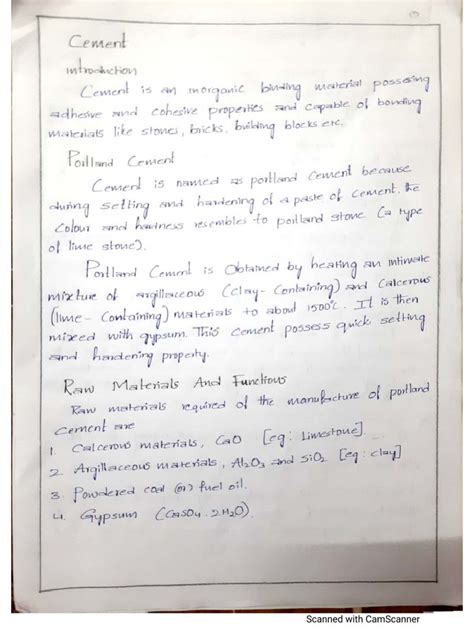 1
Cement
introduction
Cement is an inorganic binding material possesing
adhesive and cohesive properties and capable of bonding
materials like stones, bricks, building blocks etc.
Portland Cement
Cement is named as portland cement because
during setting and hardening of a paste of cement, the
colour and hardness resembles to portland stone (a type
of lime stone).
Portland Cement is obtained by heating an intimate
mixture of argillaceous (clay-Containing) and Calcerous
(lime-Containing) materials to about 1500°c. It is then
mixed with gypsum. This cement possess quick setting
and hardening property.
Raw Materials And Functions
Raw materials required of the manufacture of portland
cement are
1. Calcerous materials, CaO [eg: Limestone].
2. Argillaceous materials, Al2O3 and SiO2 [eg: clay]
3. Powdered coal (or) fuel oil.
4. Gypsum (CaSO4.2H2O).
Scanned with CamScanner